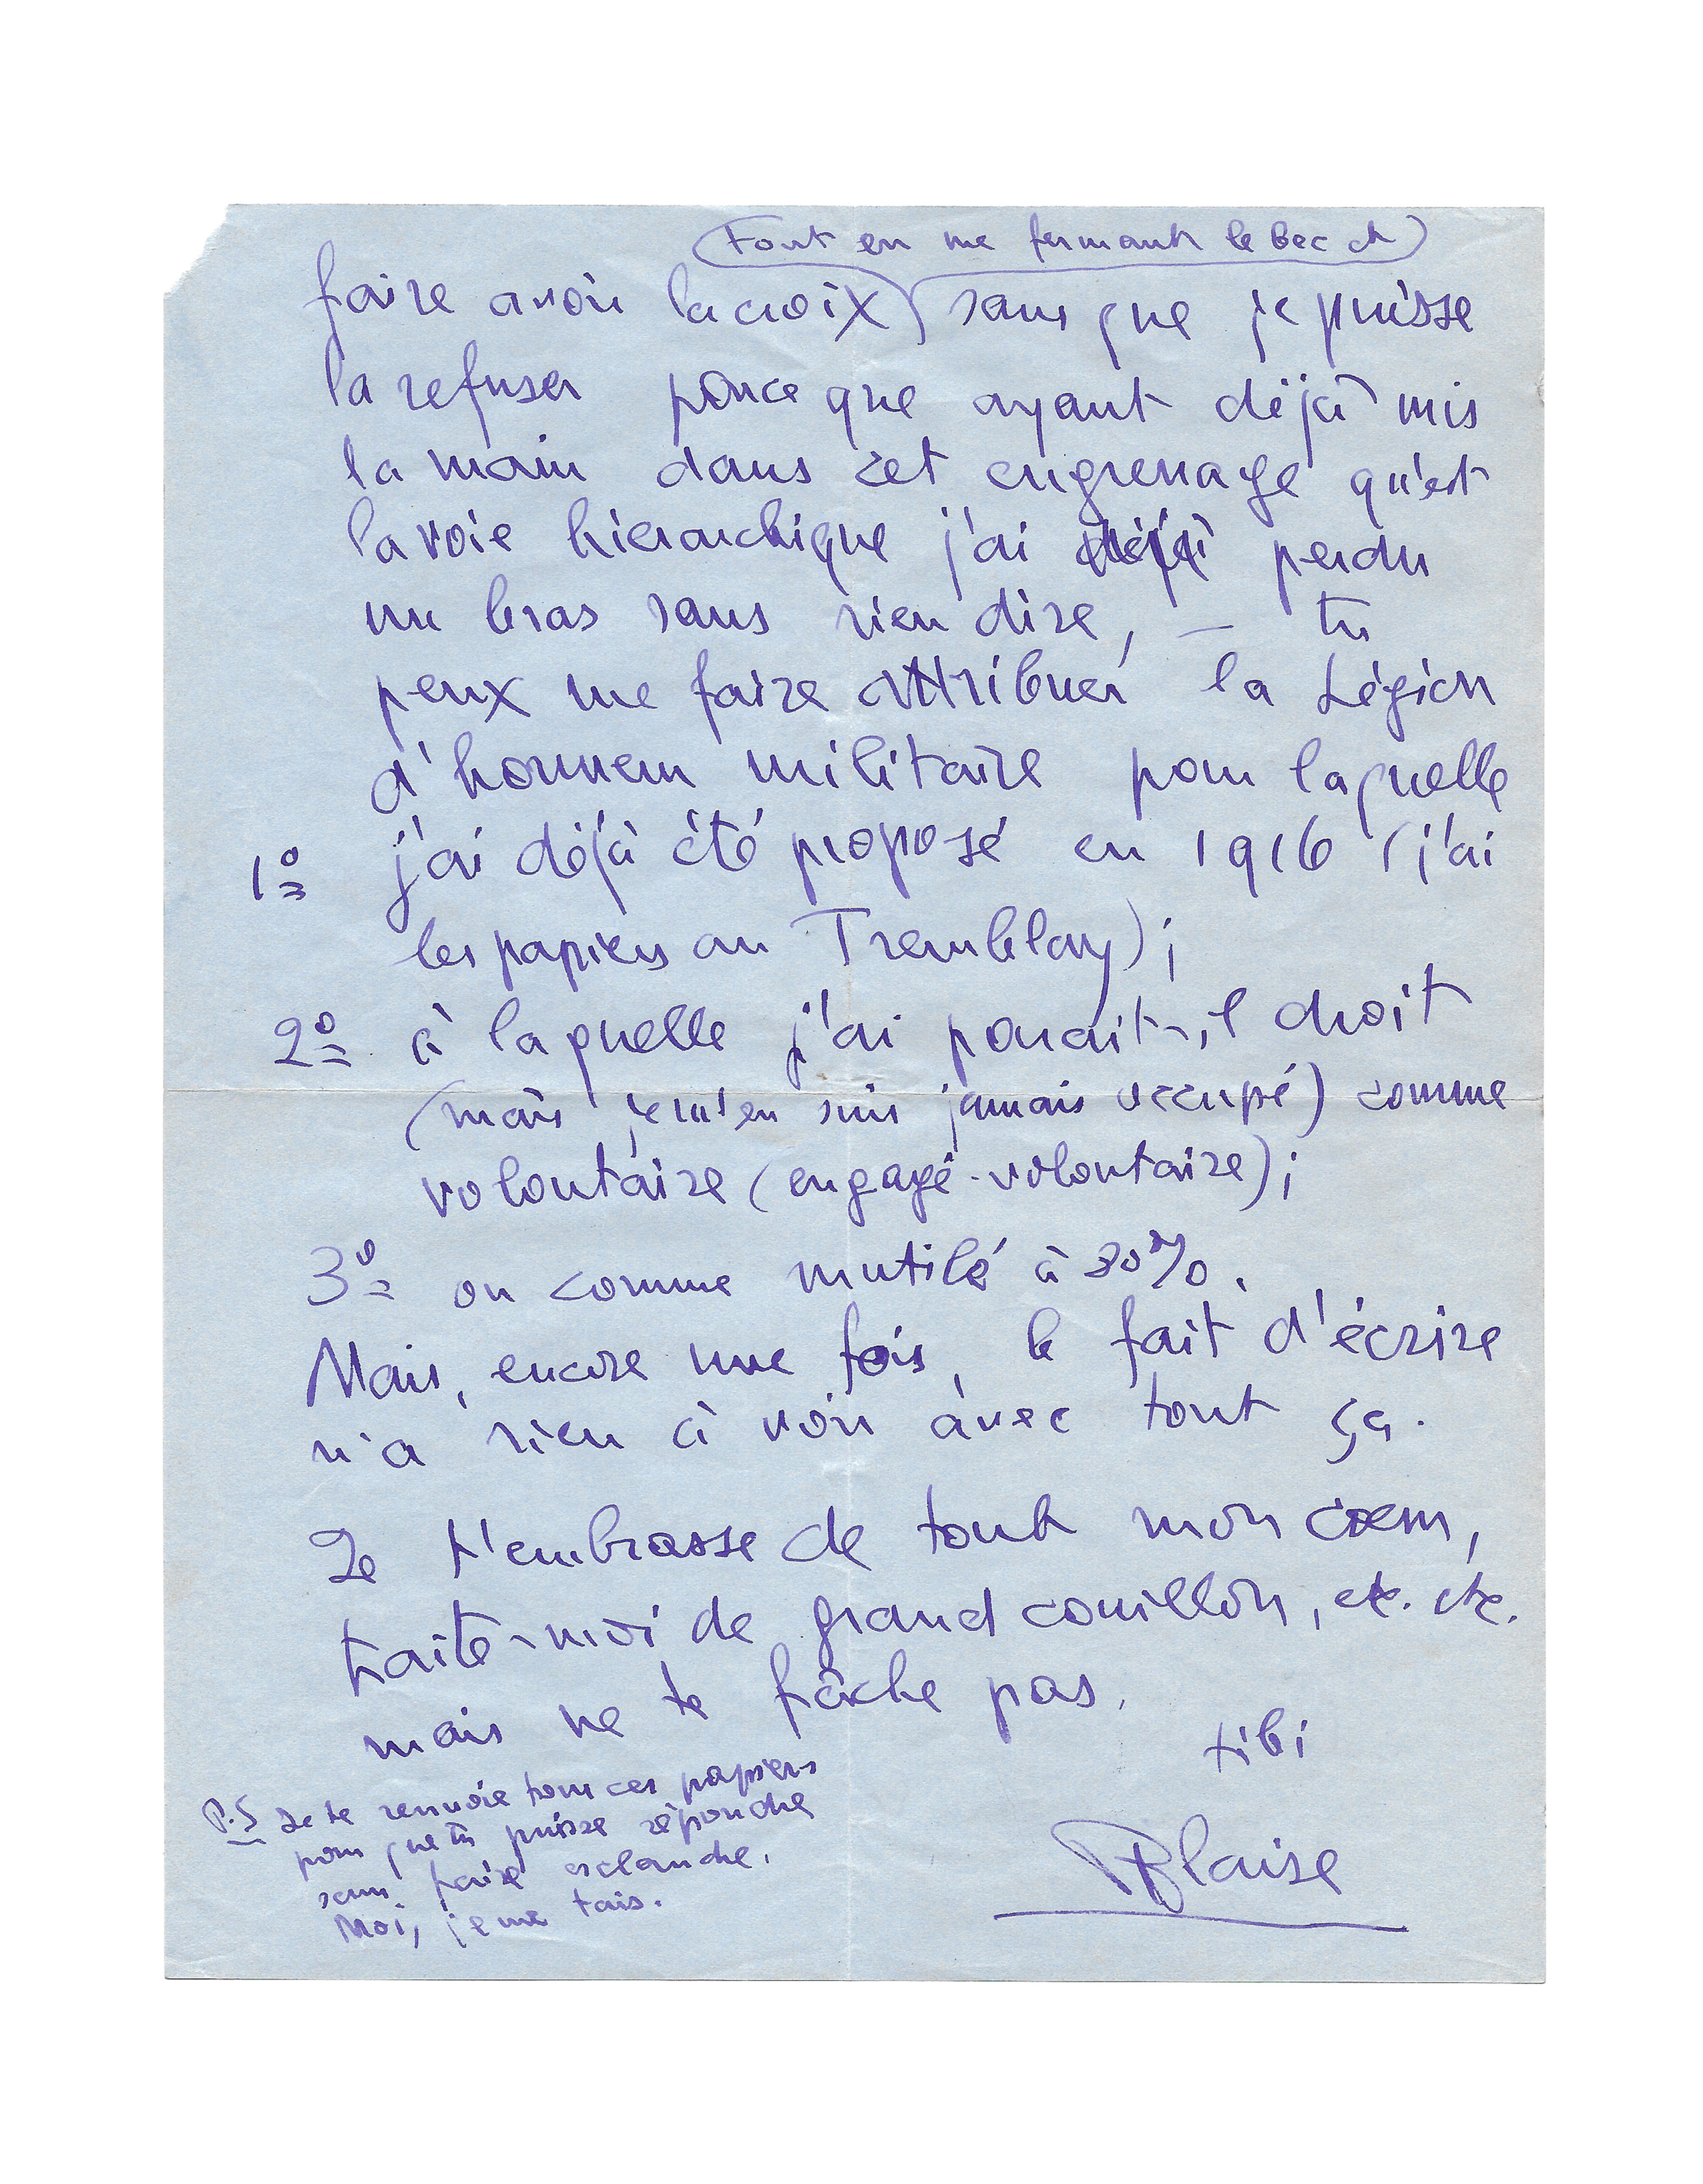 (tout en me fermant le bec et)
faire avoir la croix sans que je puisse
la refuser parce que ayant déjà mis
la main dans cet engrenage qu'est
la voie hierarchique j'ai déjà perdu
un bras sans rien dire, – tu
peux me faire attribuer la Légion
d'honneur militaire pour laquelle
1º j'ai déjà été proposé en 1916 (j'ai
les papiers au Tremblay);
2º à laquelle j'ai parait-il droit
(mais je m'en suis jamais occupé) comme
volontaire (engagé-volontaire);
3º ou comme mutilé à 80%.
Mais, encore une fois, le fait d'écrire
n'a rien à voir avec tout ça.
Je t'embrasse de tout mon coeur,
traite-moi de grand couillon, etc. etc.
mais ne te fâche pas.
tibi
Blaise
P.S Je te renvoie tous ces papiers
pour que tu puisse répondre
sans faire esclandre.
Moi, je me tais.